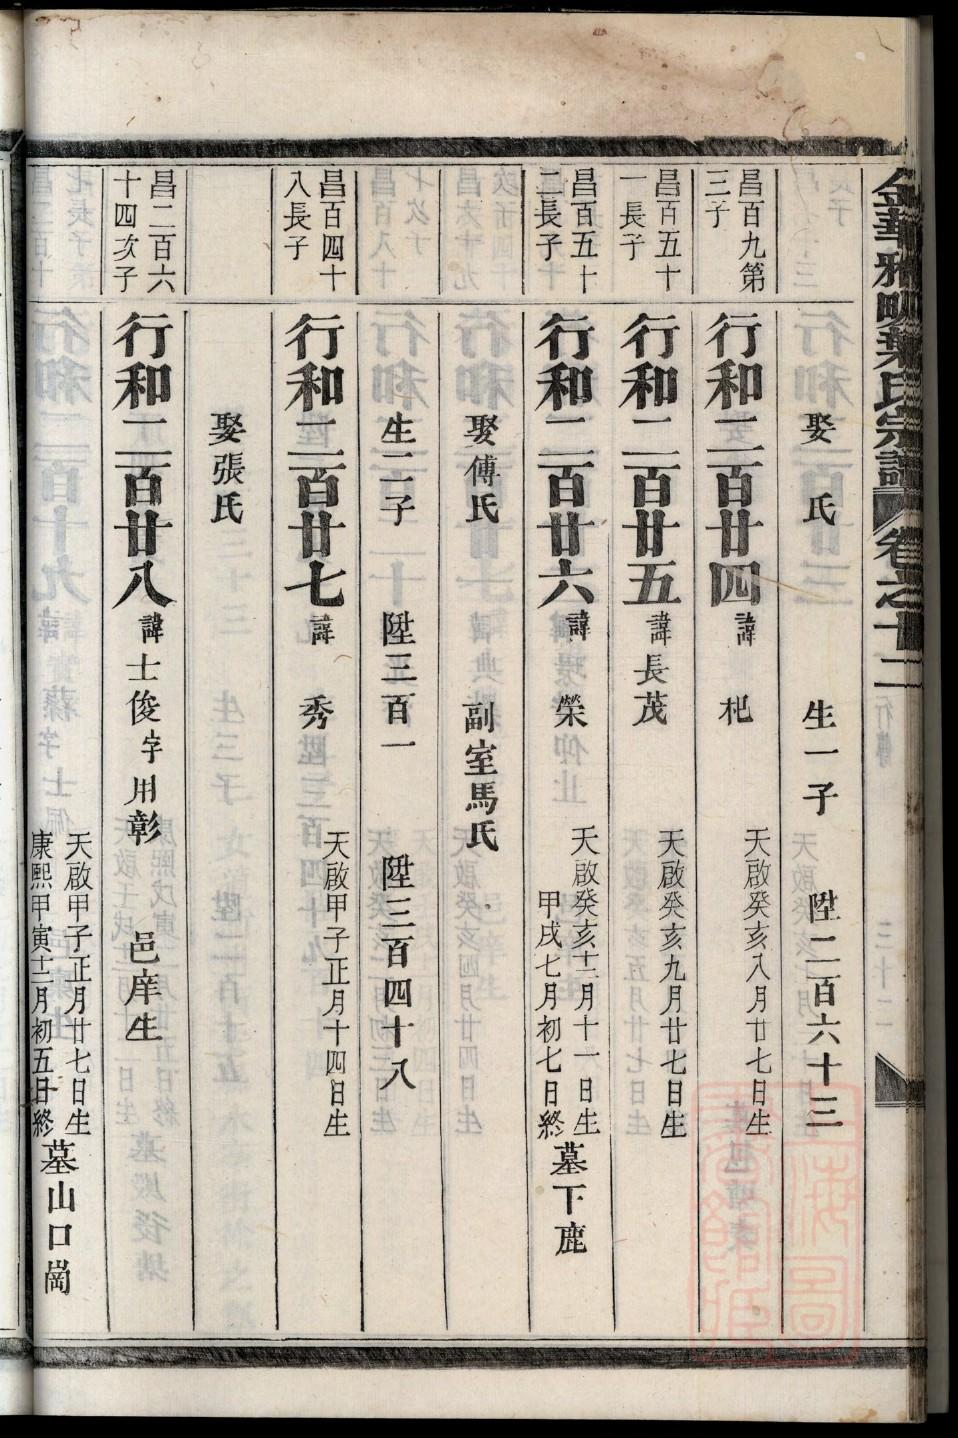 金華雅畈葉氏宗譜 卷之十二
娶 氏 生一子 陞二百六十三
昌百九第三子
行和二百廿四 諱 𣏌 天啟癸亥八月廿七日生
昌百五十一長子
行和二百廿五 諱長茂 天啟癸亥九月廿七日生
昌百五十二長子
行和二百廿六 諱 榮 天啟癸亥十二月十一日生
甲戌七月初七日終 墓下鹿
娶傅氏 副室馬氏
生二子 陞三百一 陞三百四十八
昌百四十八長子
行和二百廿七 諱 秀 天啟甲子正月十四日生
娶張氏
昌二百六十四次子
行和二百廿八 諱士俊 字用彰 邑庠生
天啟甲子正月廿七日生
康熙甲寅十二月初五日終 墓山口崗